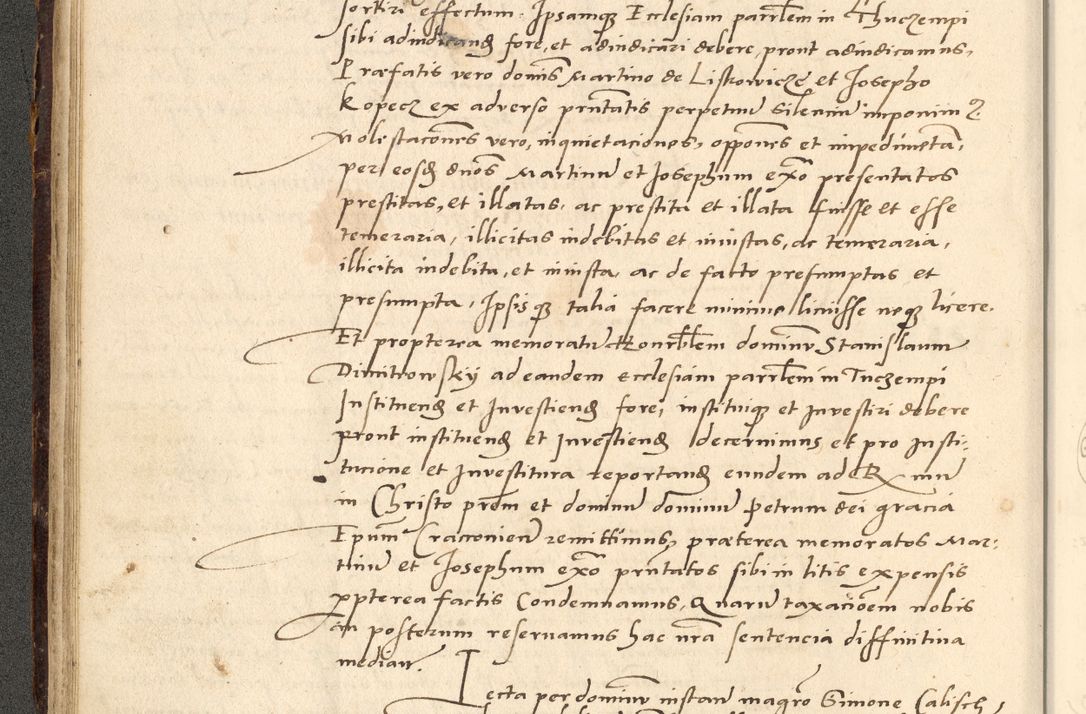 sortiri effectum. Ipsamq Ecclesiam parrlem in Thuczempi
sibi adiudicand fore, et adiudicari debere, pront adiudicamus,
Præfatis vero domis Martino de Liskowicze et Josepho
Kopecz ex adverso prntatis perpetuu silenciu imponim
Molestacones vero, inquietaciones, oppones et impedimeta,
per eosd dnos Martinu et Josephum exo presentatos
prestitas, et illatas, ac prestita et illata fuisse et esse
temeraria, illicitas indebitas et iniustas, ac temeraria,
illicita indebita, et iniusta, ac de facto presumptas et
presumpta, Ipsisq talia facere minime licuisse neq licere.
Et propterea memoratu Honrblem dominu Stanislaum
Dmitrowskÿ ad eandem Ecclesiam parrlem in Tuczempi
Instituend et Investiend fore, instituiq et Investiri debere
pront instituend et Investiend decernimus et pro Insti-
tucione et Investitura reportand eundem ad R mu
in Christo prem et dominu dominu Petrum dei gracia
Epum Cracoviens remittimus, præterea memoratos Mar-
tinu et Josephum exo prntatos sibi in litis expensis
ppterea factis Condemnamus, Quaru taxacioem nobis
in posterum reservamus hac nra sentencia diffinitiva
median.
Lecta per dominu instan magro Simone Calisch